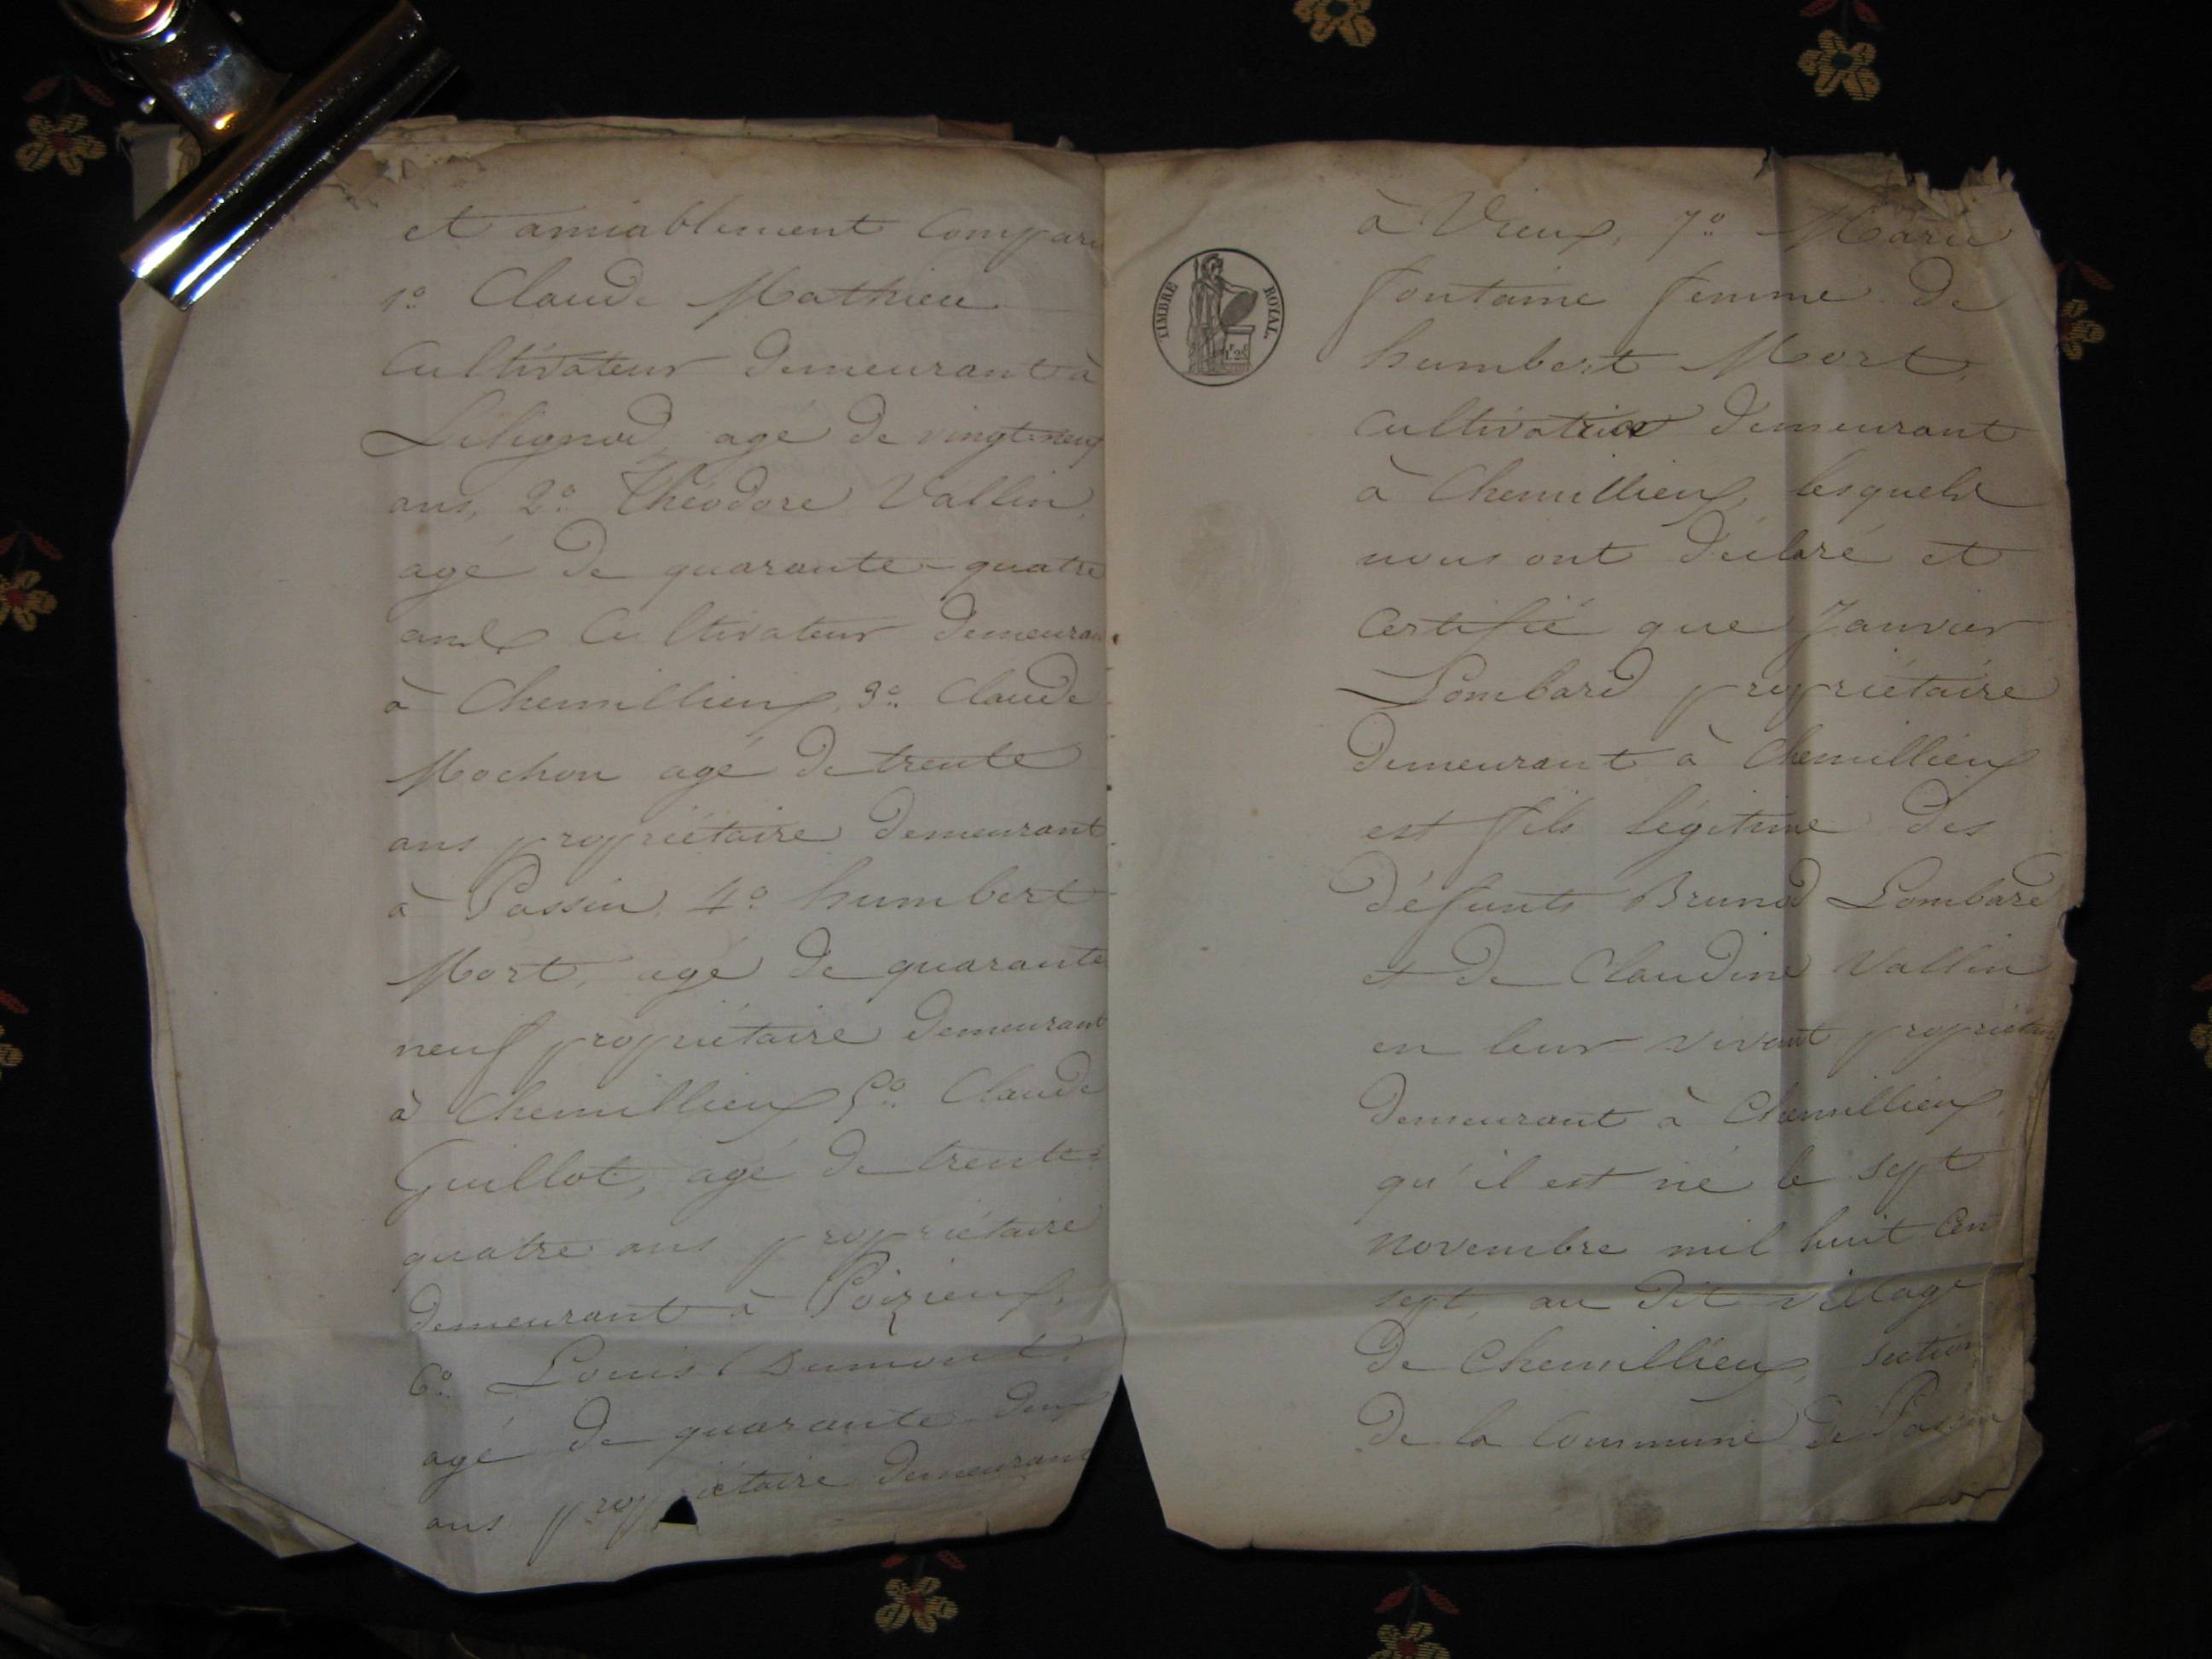 et amiablement compare
1º Claude Mathieu
cultivateur demeurant à
Lilignod, agé de vingt-neuf
ans, 2º Théodore Vallin,
agé de quarante-quatre
ans cultivateur demeuran
à Chemillieux, 3º Claude
Mochon agé de trente
ans propriétaire demeurant
à Passin, 4º humbert
Mort, agé de quarante
neuf propriétaire demeurant
à Chemillieux 5º Claude
Guillot, agé de trente-
quatre ans propriétaire
demeurant à Poizieux,
6º Louis Dumont,
agé de quarante deux
ans propriétaire demeurant
TIMBRE ROYAL
1F 25C
à Vieux, 7º Marie
fontaine femme de
humbert Mort,
cultivatrice demeurant
à Chemillieux, lesquels
nous ont déclaré et
certifié que Janvier
Lombard propriétaire
demeurant à Chemillieux
est fils légitime des
défunts Brunod Lombard
et de Claudine Vallin
en leur vivant propriétaires
demeurant à Chemillieux,
qu'il est né le sept
novembre mil huit cen
sept, au dit village
de Chemillieux, section
de la commune de Passin